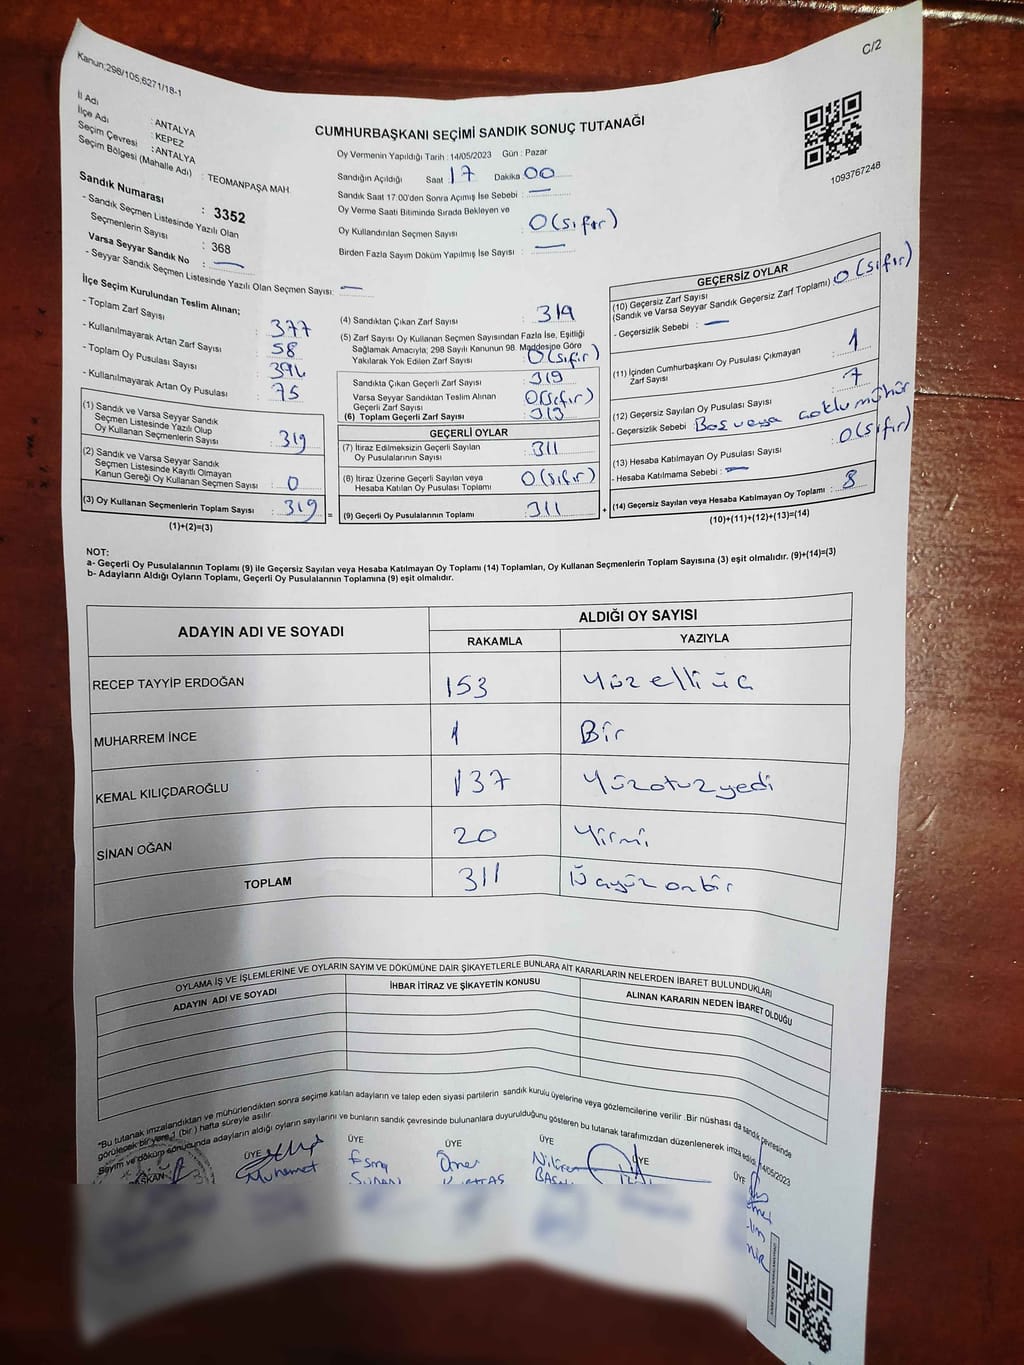 Kanun;298/105,6271/18-1
C/2
İl Adı : ANTALYA
İlçe Adı : KEPEZ
Seçim Çevresi : ANTALYA
Seçim Bölgesi (Mahalle Adı) : TEOMANPAŞA MAH.
Sandık Numarası : 3352
- Sandık Seçmen Listesinde Yazılı Olan
Seçmenlerin Sayısı : 368
Varsa Seyyar Sandık No : —
- Seyyar Sandık Seçmen Listesinde Yazılı Olan Seçmen Sayısı: —
CUMHURBAŞKANI SEÇİMİ SANDIK SONUÇ TUTANAĞI
Oy Vermenin Yapıldığı Tarih : 14/05/2023 Gün : Pazar
Sandığın Açıldığı Saat 17 Dakika 00
Sandık Saat 17:00'den Sonra Açımış İse Sebebi : —
Oy Verme Saati Bitiminde Sırada Bekleyen ve
Oy Kullandırılan Seçmen Sayısı : 0 (sıfır)
Birden Fazla Sayım Döküm Yapılmış İse Sayısı : —
1093767248
İlçe Seçim Kurulundan Teslim Alınan;
- Toplam Zarf Sayısı : 377
- Kullanılmayarak Artan Zarf Sayısı : 58
- Toplam Oy Pusulası Sayısı :
- Kullanılmayarak Artan Oy Pusulası : 75
(1) Sandık ve Varsa Seyyar Sandık
Seçmen Listesinde Yazılı Olup
Oy Kullanan Seçmenlerin Sayısı : 319
(2) Sandık ve Varsa Seyyar Sandık
Seçmen Listesinde Kayıtlı Olmayan
Kanun Gereği Oy Kullanan Seçmen Sayısı : 0
(3) Oy Kullanan Seçmenlerin Toplam Sayısı : 319 =
(1)+(2)=(3)
(4) Sandıktan Çıkan Zarf Sayısı : 319
(5) Zarf Sayısı Oy Kullanan Seçmen Sayısından Fazla İse, Eşitliği
Sağlamak Amacıyla; 298 Sayılı Kanunun 98. Maddesine Göre
Yakılarak Yok Edilen Zarf Sayısı : 0 (sıfır)
Sandıkta Çıkan Geçerli Zarf Sayısı : 319
Varsa Seyyar Sandıktan Teslim Alınan
Geçerli Zarf Sayısı : 0 (sıfır)
(6) Toplam Geçerli Zarf Sayısı : 319
GEÇERLİ OYLAR
(7) İtiraz Edilmeksizin Geçerli Sayılan
Oy Pusulalarının Sayısı : 311
(8) İtiraz Üzerine Geçerli Sayılan veya
Hesaba Katılan Oy Pusulası Toplamı : 0 (sıfır)
(9) Geçerli Oy Pusulalarının Toplamı : 311 +
GEÇERSİZ OYLAR
(10) Geçersiz Zarf Sayısı
(Sandık ve Varsa Seyyar Sandık Geçersiz Zarf Toplamı) : 0 (sıfır)
- Geçersizlik Sebebi : —
(11) İçinden Cumhurbaşkanı Oy Pusulası Çıkmayan
Zarf Sayısı : 1
(12) Geçersiz Sayılan Oy Pusulası Sayısı : 7
- Geçersizlik Sebebi : Boş veya çoklu mühür
(13) Hesaba Katılmayan Oy Pusulası Sayısı : 0 (sıfır)
- Hesaba Katılmama Sebebi : —
(14) Geçersiz Sayılan veya Hesaba Katılmayan Oy Toplamı : 8
(10)+(11)+(12)+(13)=(14)
NOT:
a- Geçerli Oy Pusulalarının Toplamı (9) ile Geçersiz Sayılan veya Hesaba Katılmayan Oy Toplamı (14) Toplamları, Oy Kullanan Seçmenlerin Toplam Sayısına (3) eşit olmalıdır. (9)+(14)=(3)
b- Adayların Aldığı Oyların Toplamı, Geçerli Oy Pusulalarının Toplamına (9) eşit olmalıdır.
ADAYIN ADI VE SOYADI ALDIĞI OY SAYISI
RAKAMLA YAZIYLA
RECEP TAYYİP ERDOĞAN 153 Yüz elli üç
MUHARREM İNCE 1 Bir
KEMAL KILIÇDAROĞLU 137 Yüzotuzyedi
SİNAN OĞAN 20 Yirmi
TOPLAM 311 Üçyüz onbir
OYLAMA İŞ VE İŞLEMLERİNE VE OYLARIN SAYIM VE DÖKÜMÜNE DAİR ŞİKAYETLERLE BUNLARA AİT KARARLARIN NELERDEN İBARET BULUNDUKLARI
ADAYIN ADI VE SOYADI İHBAR İTİRAZ VE ŞİKAYETİN KONUSU ALINAN KARARIN NEDEN İBARET OLDUĞU
*Bu tutanak imzalandıktan ve mühürlendikten sonra seçime katılan adayların ve talep eden siyasi partilerin sandık kurulu üyelerine veya gözlemcilerine verilir. Bir nüshası da sandık çevresinde
görülecek bir yere 1 (bir) hafta süreyle asılır.
Sayım ve döküm sonucunda adayların aldığı oyların sayılarını ve bunların sandık çevresinde bulunanlara duyurulduğunu gösteren bu tutanak tarafımızdan düzenlenerek imza edildi. 14/05/2023
BAŞKAN ÜYE ÜYE ÜYE ÜYE ÜYE ÜYE
Muhamet Esma Ömer